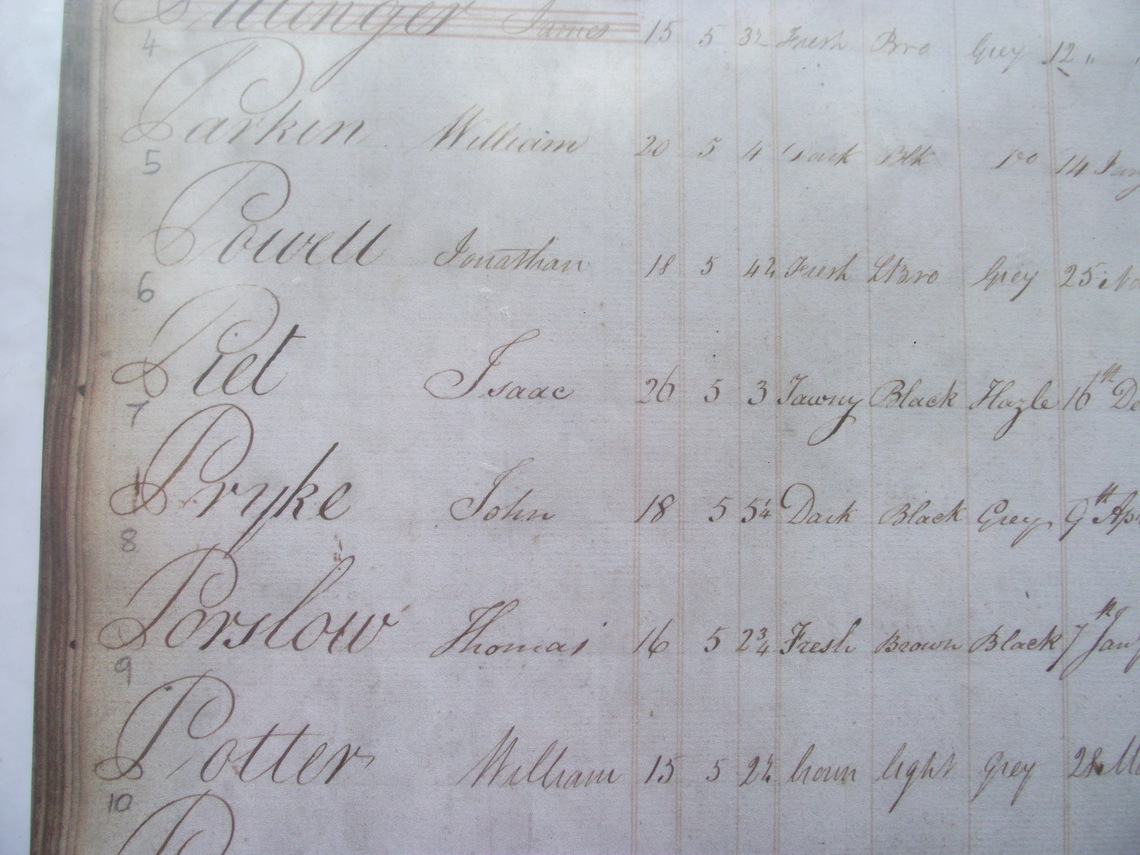 James 15 5 3½ Fresh Bro Grey 12 "
4
Parkin William 20 5 4 Dark Blk Do 14
5
Powell Jonathan 18 5 4½ Fresh Lt Bro Grey 25
6
Piet Isaac 26 5 3 Tawny Black Hazle 16th De
7
Pryke John 18 5 5¼ Dark Black Grey 9th Ap
8
Porslow Thomas 16 5 2¾ Fresh Brown Black 7th Jany
9
Potter William 15 5 2½ brown light Grey 28
10